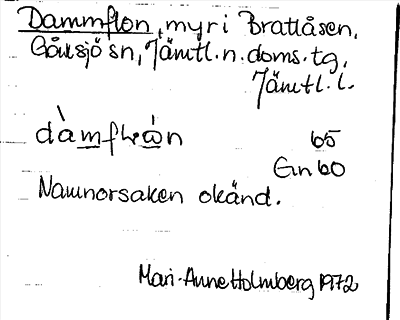 Dammflon, myr i Brattåsen,
Gåxsjö sn, Jämtl. n. doms. tg,
Jämtl. l.
65
Ein 60
Namnorsaken okänd.
Mari-Anne Holmberg 1972